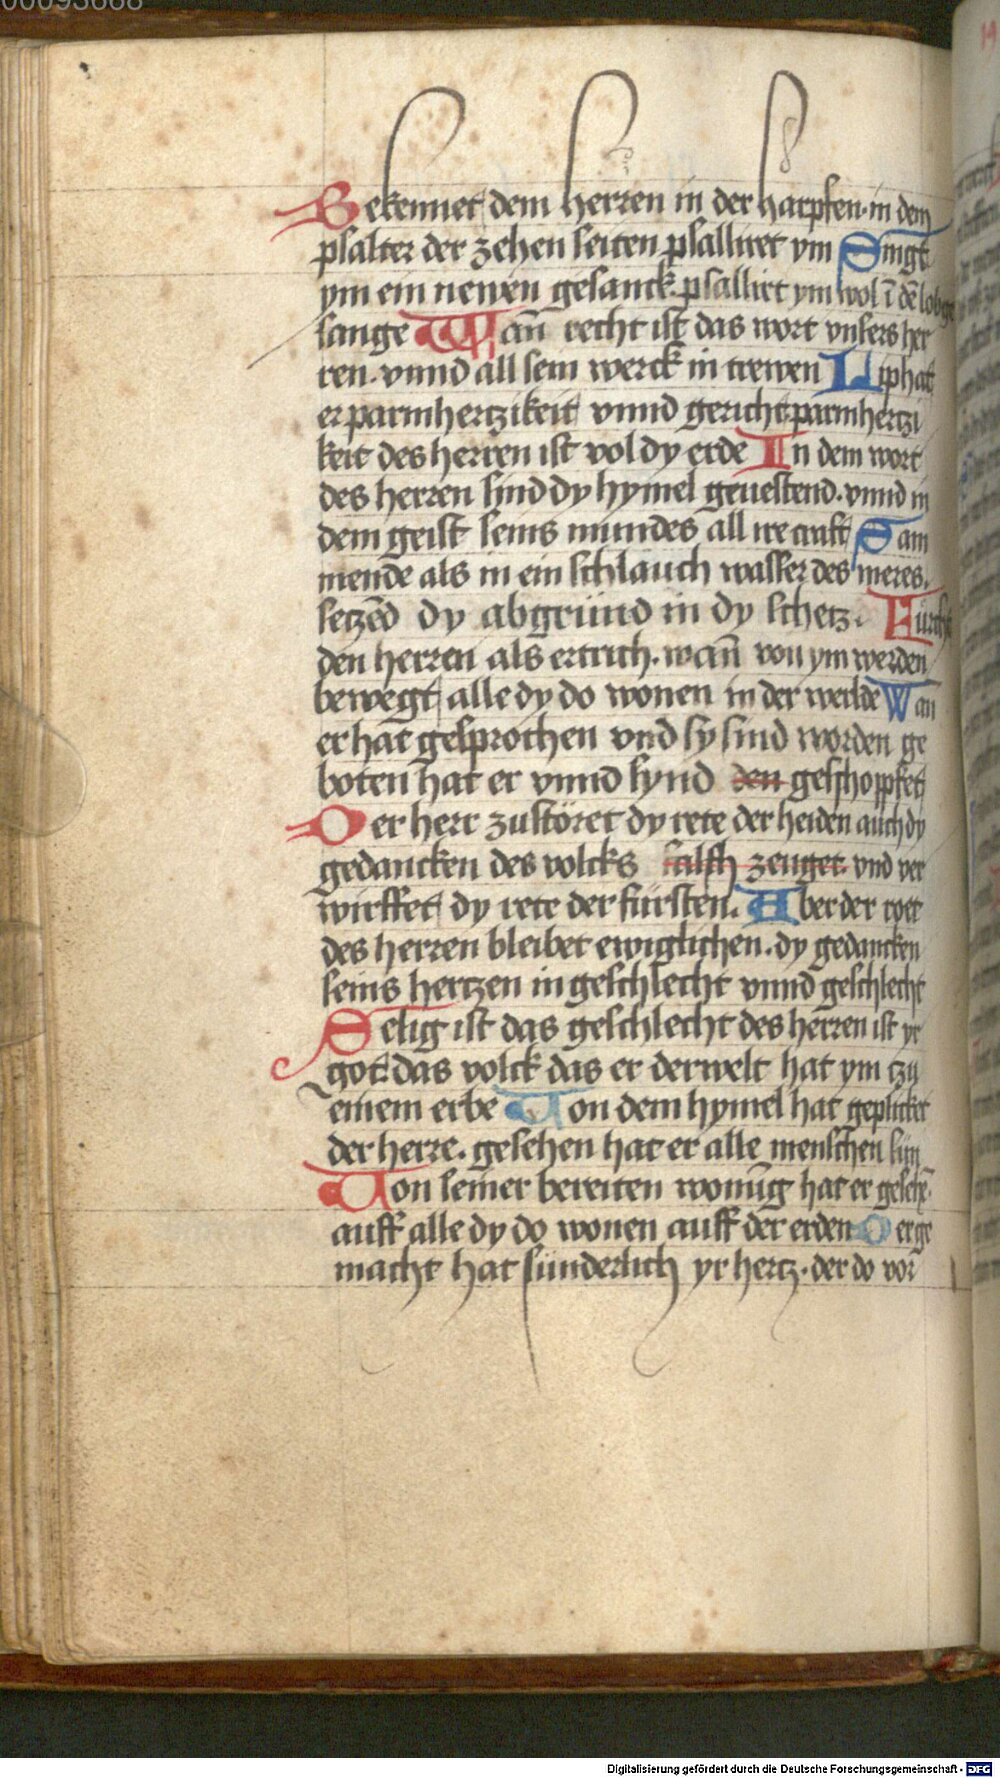 00093668
Bekennet dem herren in der harpfen· in dem
psalter der zehen seiten psalliret ym Singt
ym ein newen gesanck psallirt ym wol ī dē lobge
sange Wañ recht ist das wort vnsers her
ren· vnnd all sein werck in trewen Liphat
er parmhertzikeit vnnd gericht parmhertzi
keit des herren ist vol dy erde In dem wort
des herren sind dy hymel geuestend· vnnd in
dem geist seins mundes all ire craft Sam
mende als in ein schlauch wasser des meres.
setzēd dy abgrūnd in dy schetz. Fürcht
den herren als ertrich· wañ von ym werden
bewegt alle dy do wonen in der werlde Wan
er hat gesprochen vnd sy sind worden ge
boten hat er vnnd synd den geschopffet
Der herr zustöret dy rete der heiden auch dy
gedancken des volcks falsch zeuget vnd ver
wirffet dy rete der fürsten. Aber der
des herren bleibet ewiglichen· dy gedancken
seins hertzen in geschlecht vnnd geschlecht
Selig ist das geschlecht des herren ist yr
got· das volck das er derwelt hat ym tzu
einem erbe Uon dem hymel hat geplicket
der herre· gesehen hat er alle menschen sun
Uon seiner bereiten wonūg hat er gesehē·
auff alle dy do wonen auff der erden Der ge
macht hat sünderlich yr hertz· der do vor
Digitalisierung gefördert durch die Deutsche Forschungsgemeinschaft - DFG